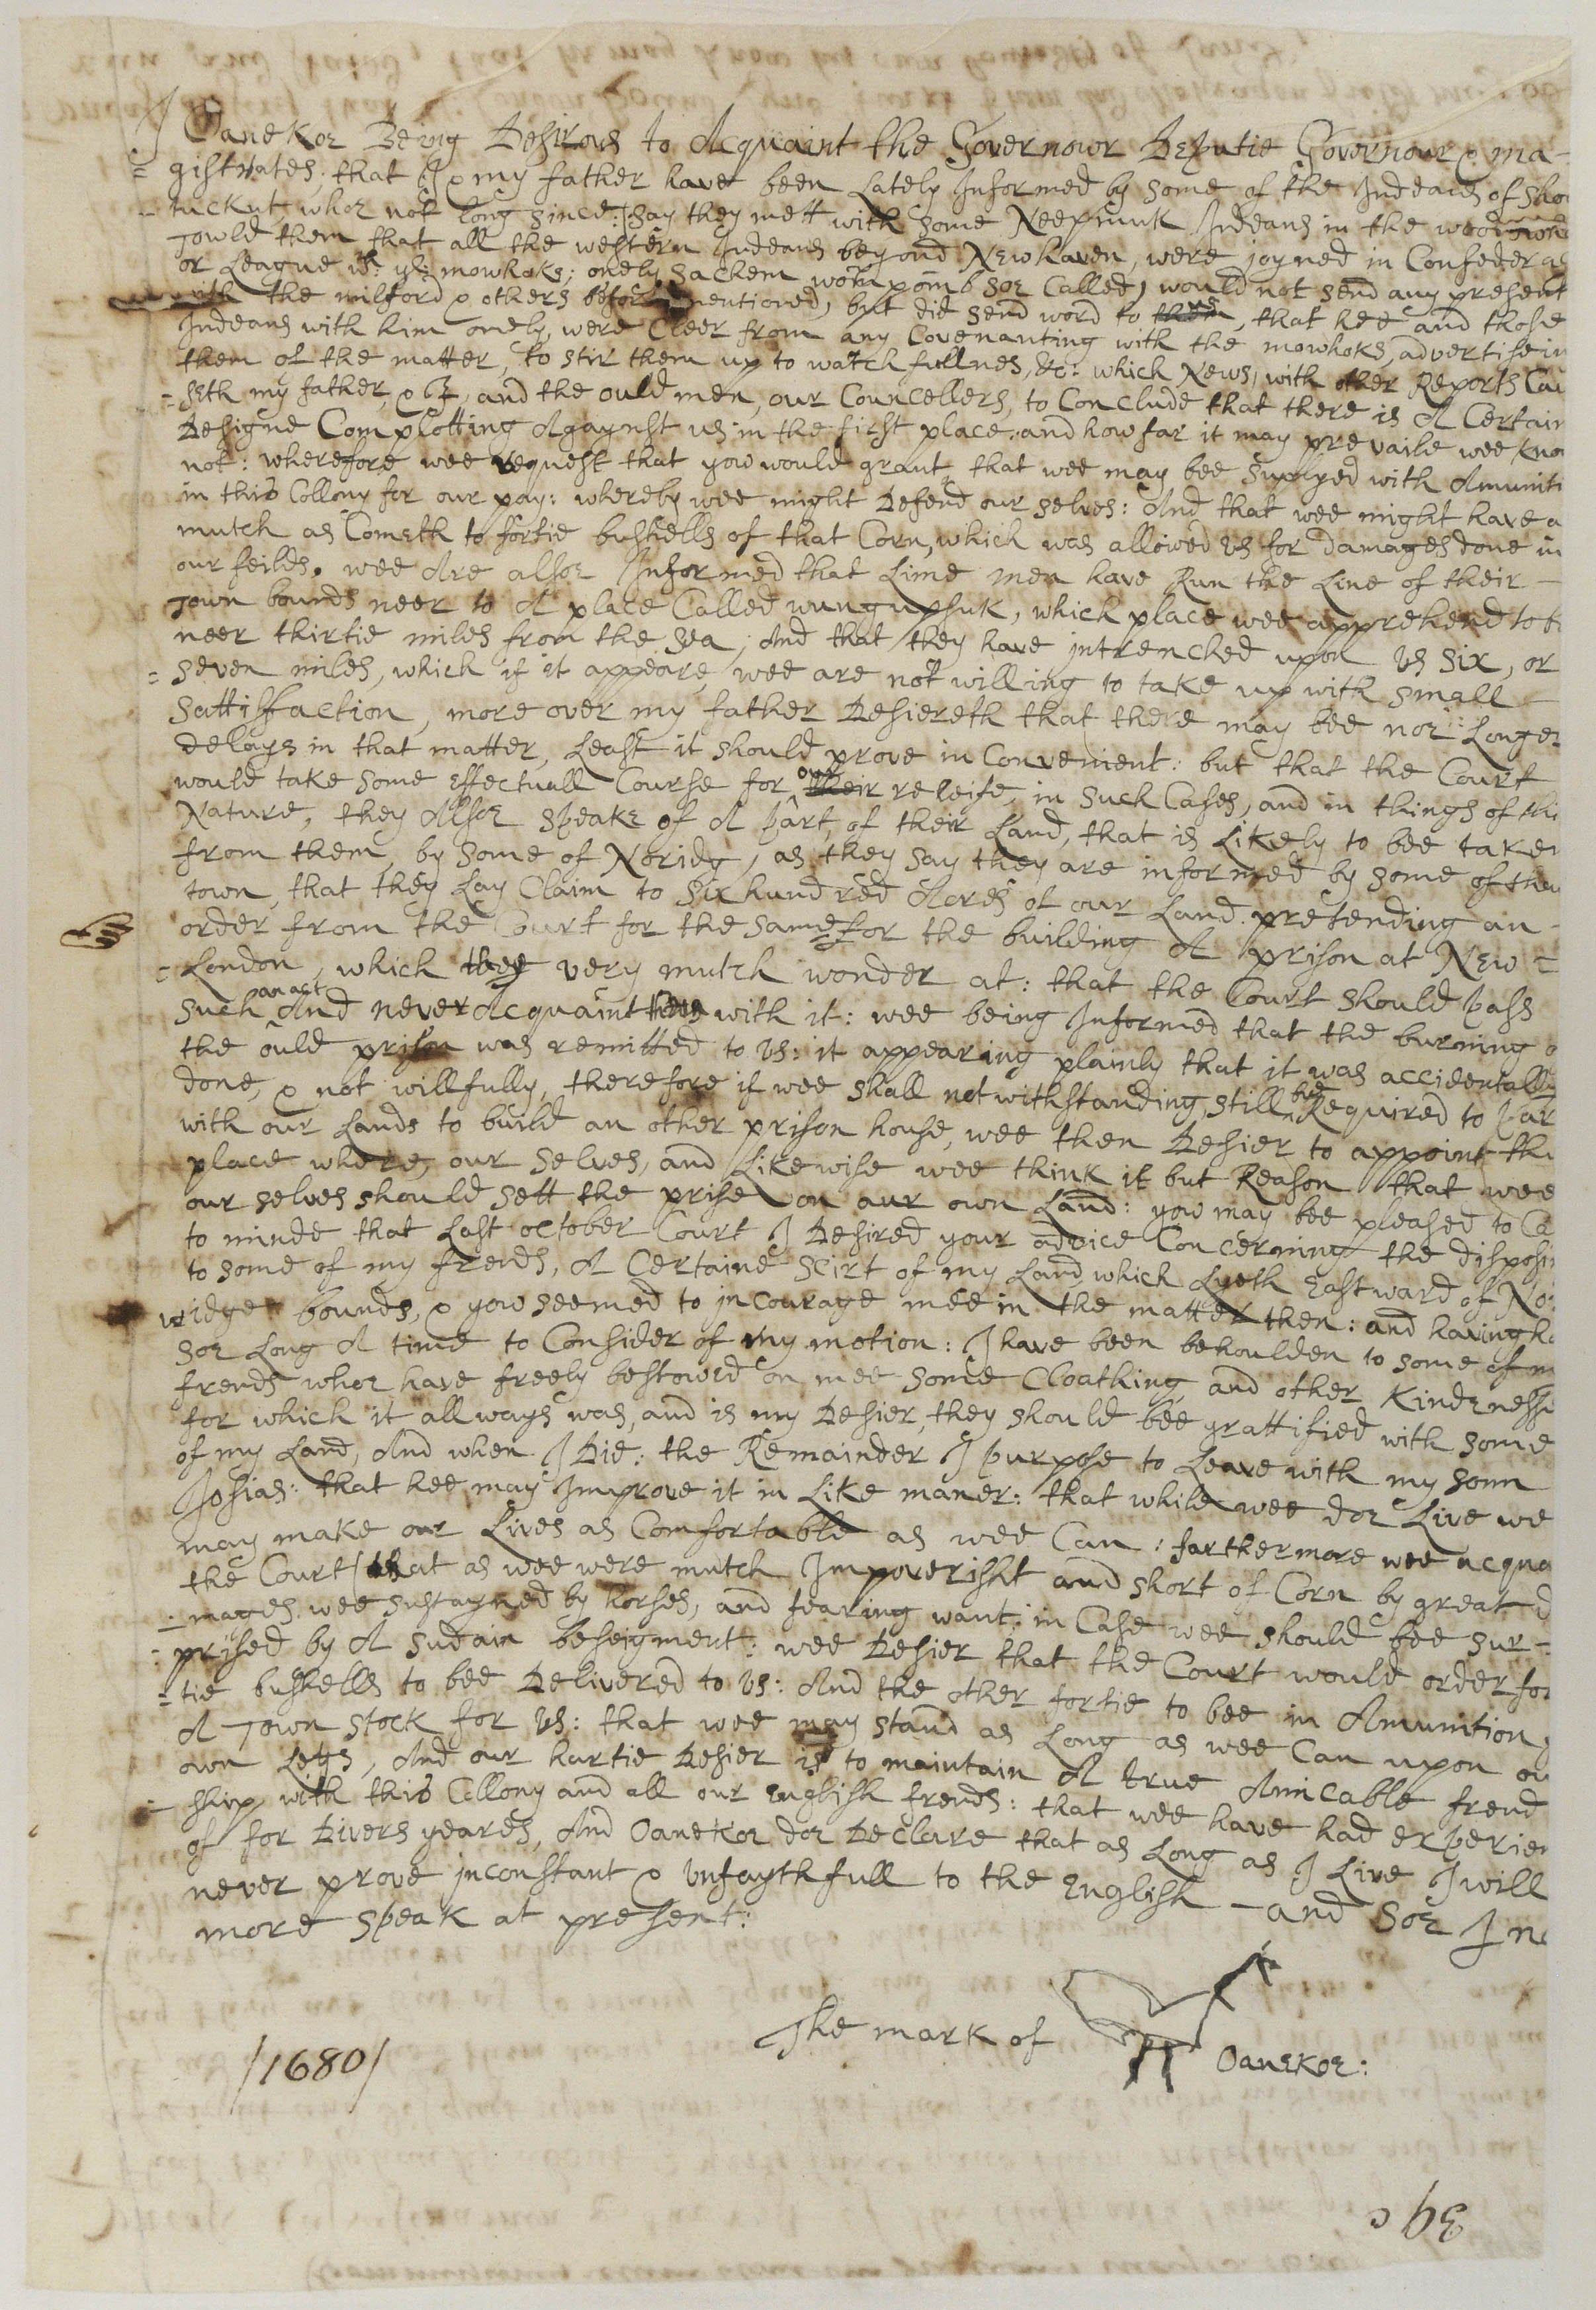 I Oanekoe Being Desirous to Acquaint the Governour Deputie Governour & ma-
= gistrates; that I & my father have been Lately Informed by some of the Indeans of Show
- tuckut, whoe not long since: say they mett with some Neepmuk Indeans in the wood
Towld them that all the western Indeans beyond Newhaven, were joyned in Confedera
or League wth: ye: mowhoks; onely Sachem womponib soe Called, would not send any present
with the milford & others before mentioned, but did send word to them, that hee and those
Indeans with him onely, were Cleer from any Covenanting with the mowhoks, advertisein
them of the matter, to stir them up to watchfullnes, &c: which News, with other Reports Cau
= seth my father, & I, and the ould men, our Councellers, to Conclude that there is A Certain
Designe Complotting Agaynst us in the first place, and how far it may prevaile wee know
not: wherefore wee request that you would grant, that wee may bee Suplyed with Amuniti
in this Collony for our pay: whereby wee might Defend our selves: And that wee might have a
mutch as Cometh to fortie bushells of that Corn, which was allowed us for damages done in
our feilds. wee Are alsoe Informed that Lime men have Run the Line of their -
Town bounds neer to A place Called wungupsuk, which place wee apprehend to b
neer thirtie miles from the sea; And that they have intrenched upon us six, or
= seven miles, which if it appeare, wee are not willing to take up with small -
Sattisfaction, more over my father Desiereth that there may bee noe: Longer
delays in that matter, Least it should prove in Convenient: but that the Court
would take some effectuall Course for our their releife, in such Cases, and in things of thi
Nature, they Alsoe speake of A part, of their Land, that is Likely to bee taken
from them, by some of Noridg, as they say they are informed by some of their
town, that they Lay Claim to six hundred Acres of our Land pretending an -
order from the Court for the same for the building A prison at New =
= London, which they very mutch wonder at: that the Court should pass
Such an act And never Acquaint with it: wee being Informed that the burning o
the ould prison was remitted to us: it appearing plainly that it was accidentally
done, & not willfully, therefore if wee shall notwithstanding, still bee Required to par
with our Lands to build an other prison house, wee then Desier to appoint the
place where, our selves, and Likewise wee think it but Reason that wee
our selves should sett the prise on our own Land: you may bee pleased to Ca
to minde that Last october Court I Desired your advice Concerning the disposin
to some of my frends, A Certaine Scirt of my Land, which Lyeth Eastward of No
widge bounds, & you seemed to incourage mee in the matter then: and having ha
soe Long A time to Consider of my motion: I have been behoulden to some of m
frends whoe have freely bestowed on mee some Cloathing, and other Kindenesse
for which it allways was, and is my Desier, they should bee grattified with some
of my Land, And when I Die: the Remainder I purpose to Leave with my sonn
Josias: that hee may Improve it in Like maner: that while wee doe Live we
may make our Lives as Comfortable as wee Can: farthermore wee acqua
the Court that as wee were mutch Impoverisht and short of Corn by great d
= mages wee sustayned by horses, and fearing want: in Case wee should bee sur-
- prised by A sudain beseigment: wee Desier that the Court would order for
= tie bushells to bee Delivered to us: And the other fortie to bee in Amunition,
A Town stock for us: that wee may stand as Long as wee Can upon ou
own Legs, And our hartie Desier is to maintain A true Amicable frend
- ship with this Collony and all our English frends: that wee have had experien
of for Divers yeares, And Oanekoe doe Declare that as Long as I Live I will
never prove inconstant & unfaythfull to the English - and Soe I no
more speak at present:
The mark of
Oanekoe:
/1680/
39 c